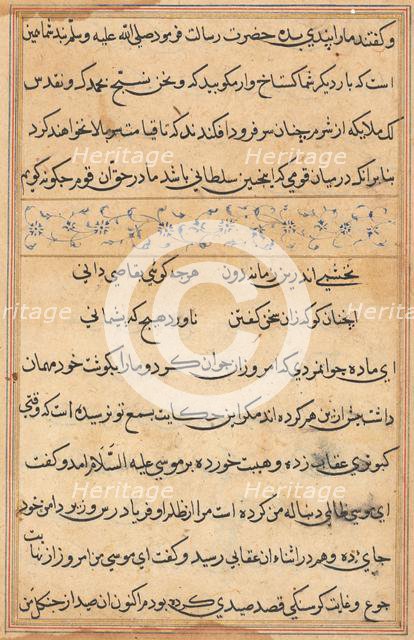 وگفتند ما را پندی بده حضرت رسالت فرمود صلی الله علیه وسلم بند شما همین
است که بار دیگر شما گستاخ وار مگویید که ونحن نسبح بحمدک ونقدس
لک ملایکه از شرم چنان سر فرود افکندند که تا قیامت سر بالا نخواهند کرد
بنابرانکه درمیان قومی که اینچنین سلطانی باشد ما در حق ان قوم چگونه گوییم
نخشبی اندرین زمانه درون هرچه گویی بقاصی دانی
انچنان گو که زان سخن گفتن ناوردهیچ گه پشمانی
ای ماده جوانمردی که امروز ان جوان کرد و مارا بگوشت خود مهمان
داشت جز ان هر کرده اند مگو این حکایت بسمع تو نرسیده است که وقتی
کبوتری عقاب زده وهیبت خورده بر موسی علیه السلام امد وگفت
ای موسی ظالمی دنباله من کرده است مرا از ظلم او فریاد رس و زیر دامن خود
جای ده وهم در اثناء ان عقابی رسید وگفت ای موسی من امروز از نهایت
جوع وغایت گرسنگی قصد صیدی کرده بودم اکنون ان صید از چنگل من
Heritage
Images